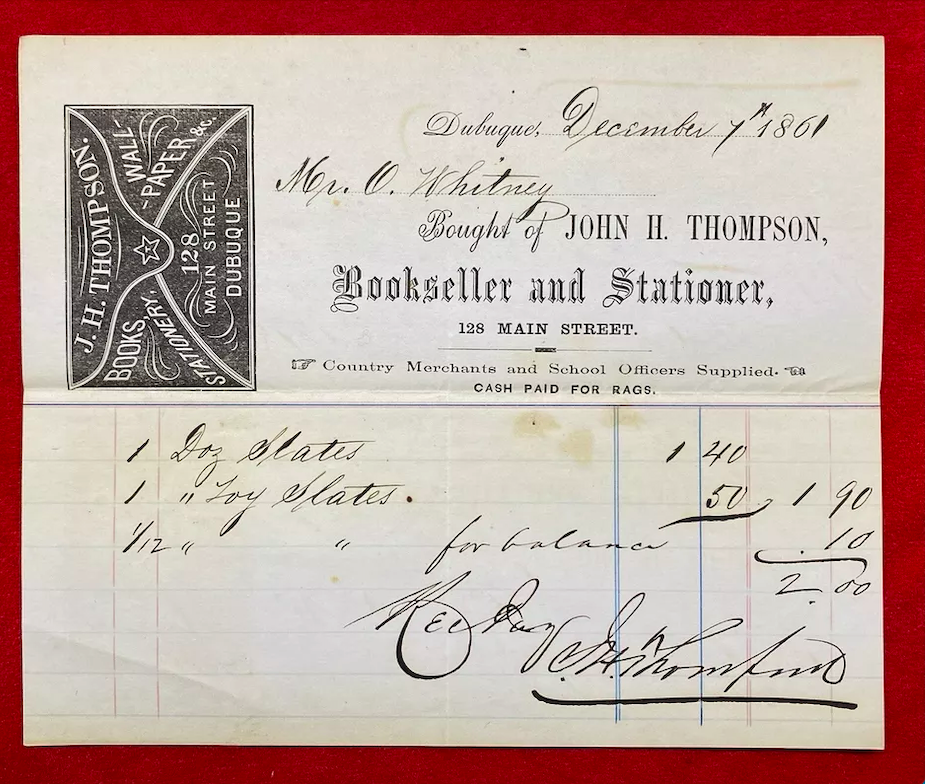 J. H. THOMPSON.
WALL-PAPER &c.
BOOKS,
STATIONERY,
128
MAIN STREET
DUBUQUE
Dubuque, December 7th 1861
Mr. O. Whitney
Bought of JOHN H. THOMPSON,
Bookseller and Stationer,
128 MAIN STREET.
Country Merchants and School Officers Supplied.
CASH PAID FOR RAGS.
1 Doz Slates 1 40
1 " Toy Slates. 50 1 90
1/12 " " for balance .10
2.00
Rec Pay
J.H. Thompson